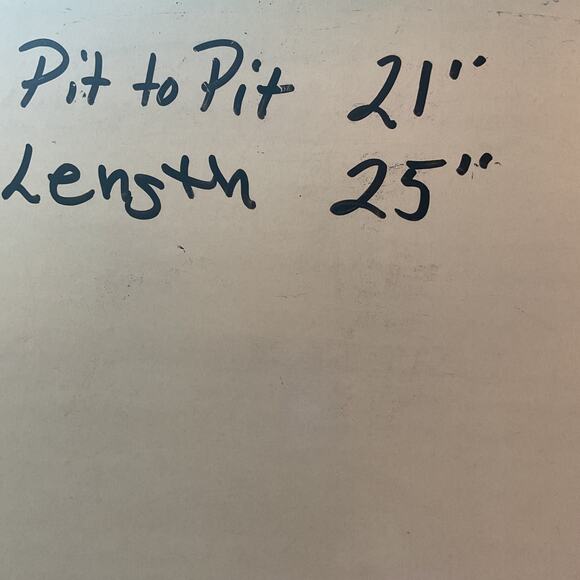 Pit to Pit 21"
Length 25"